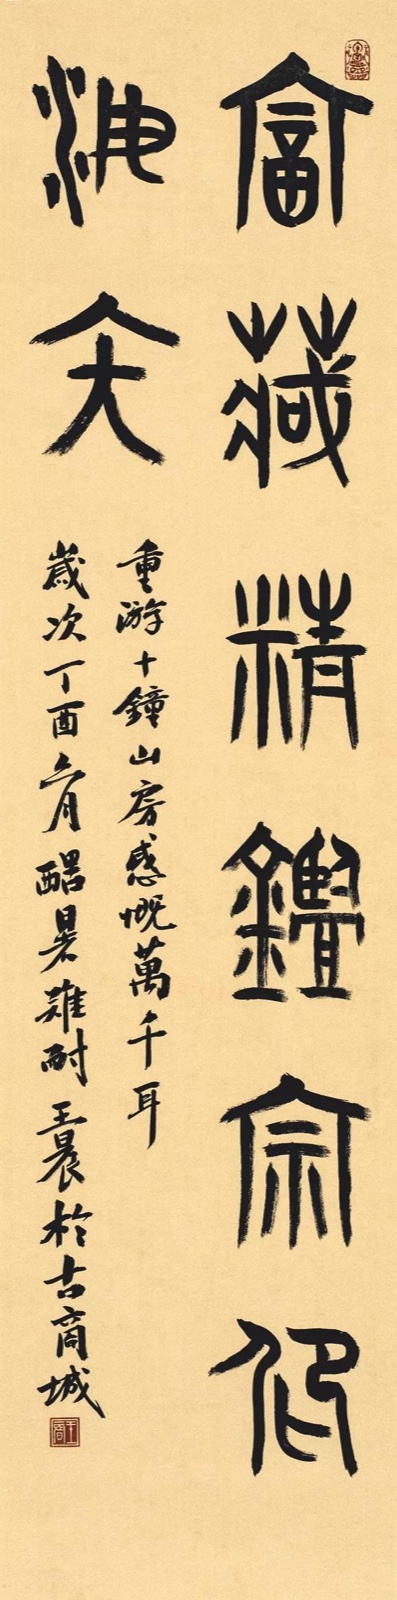 富藏精鑑宗仰
海内
重游十鐘山房感慨萬千耳
歲次丁酉六月酷暑難耐王晨於古商城